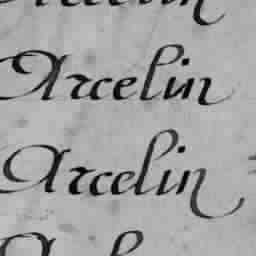 Arcelin
Arcelin